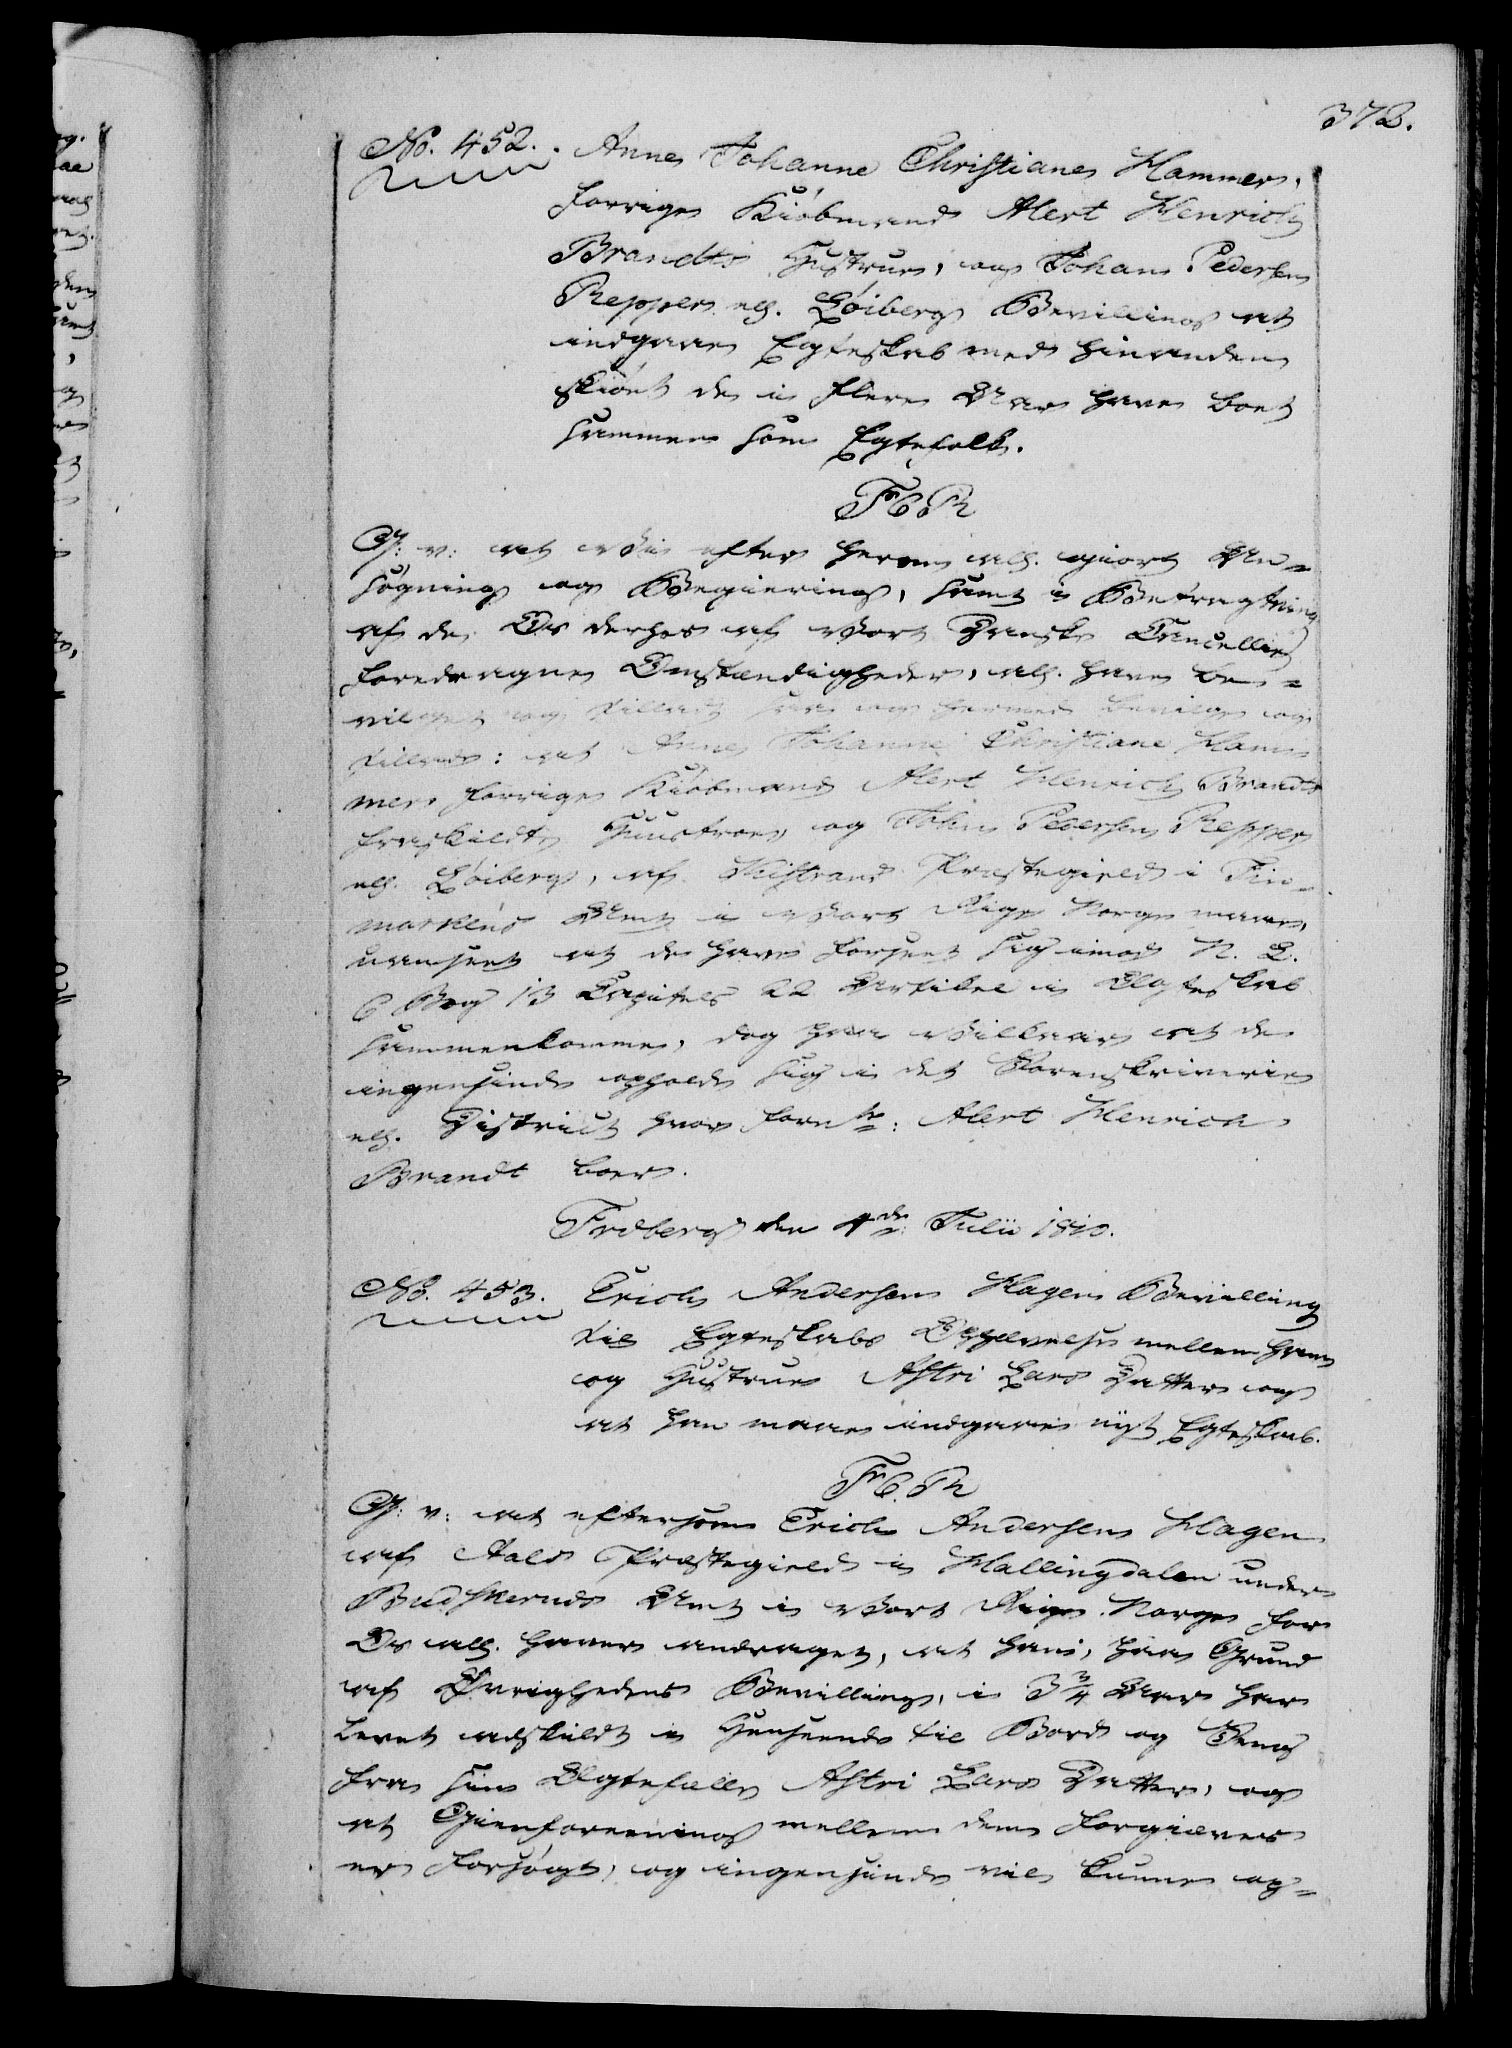 372.
No. 452. Anne Johanne Christiane Hammer,
forrige Kiøbmand Alert Henrich
Brandts Hustrue, og Johan Pedersen
Repper ell. Løiberg Bevilling at
indgaae Egteskab med hinanden
skiønt de i flere Aar have boet
sammen som Egtefolk.
F 6 R
G: v: at Vi efter herom all. giort An-
søgning og Begiering, samt i Betragtning
af de Os derhos af Vort Danske Cancellie
foredragne Omstændigheder, all. have be-
vilget og tilladt saa og hermed bevilge og
tillade: at Anne Johanne Christiane Ham
mer forrige Kiøbmand Alert Henrich Brandts
fraskildte Huustroe, og John Pedersen Repper
ell. Løiberg, af Kistrand Præstegield i Fin-
markens Amt i Vort Rige Norge maae,
uanseet at de have forseet sig imod N. L.
6 Bog 13 Capitels 22 Artikel i Ægteskab
sammenkomme, dog paa Vilkaar at de
ingensinde opholde sig i det Sorenskriverie
ell. District hvor fornte: Alert Henrich
Brandt boer.
Frdberg den 4de Julii 1810.
No. 453. Erich Andersen Hagen Bevilling
til Egteskabs Ophævelse mellem ham
og Hustrue Astri Lars Datter og
at han maae indgaae nyt Egteskab.
F 6. R
G: v: at eftersom Erich Andersen Hagen
af Aals Præstegield i Hallingdalen under
Budskeruds Amt i Vort Rige Norge for
Os all. haver andraget, at han, paa Grund
af Øvrighedens Bevilling, i 3 3/4 Aar har
levet adskildt i Henseende til Bord og Seng
fra sin Ægtefælle Astri Lars Datter, og
at Gienforeening mellem dem forgieves
er forsøgt, og ingensinde vil kunne op-